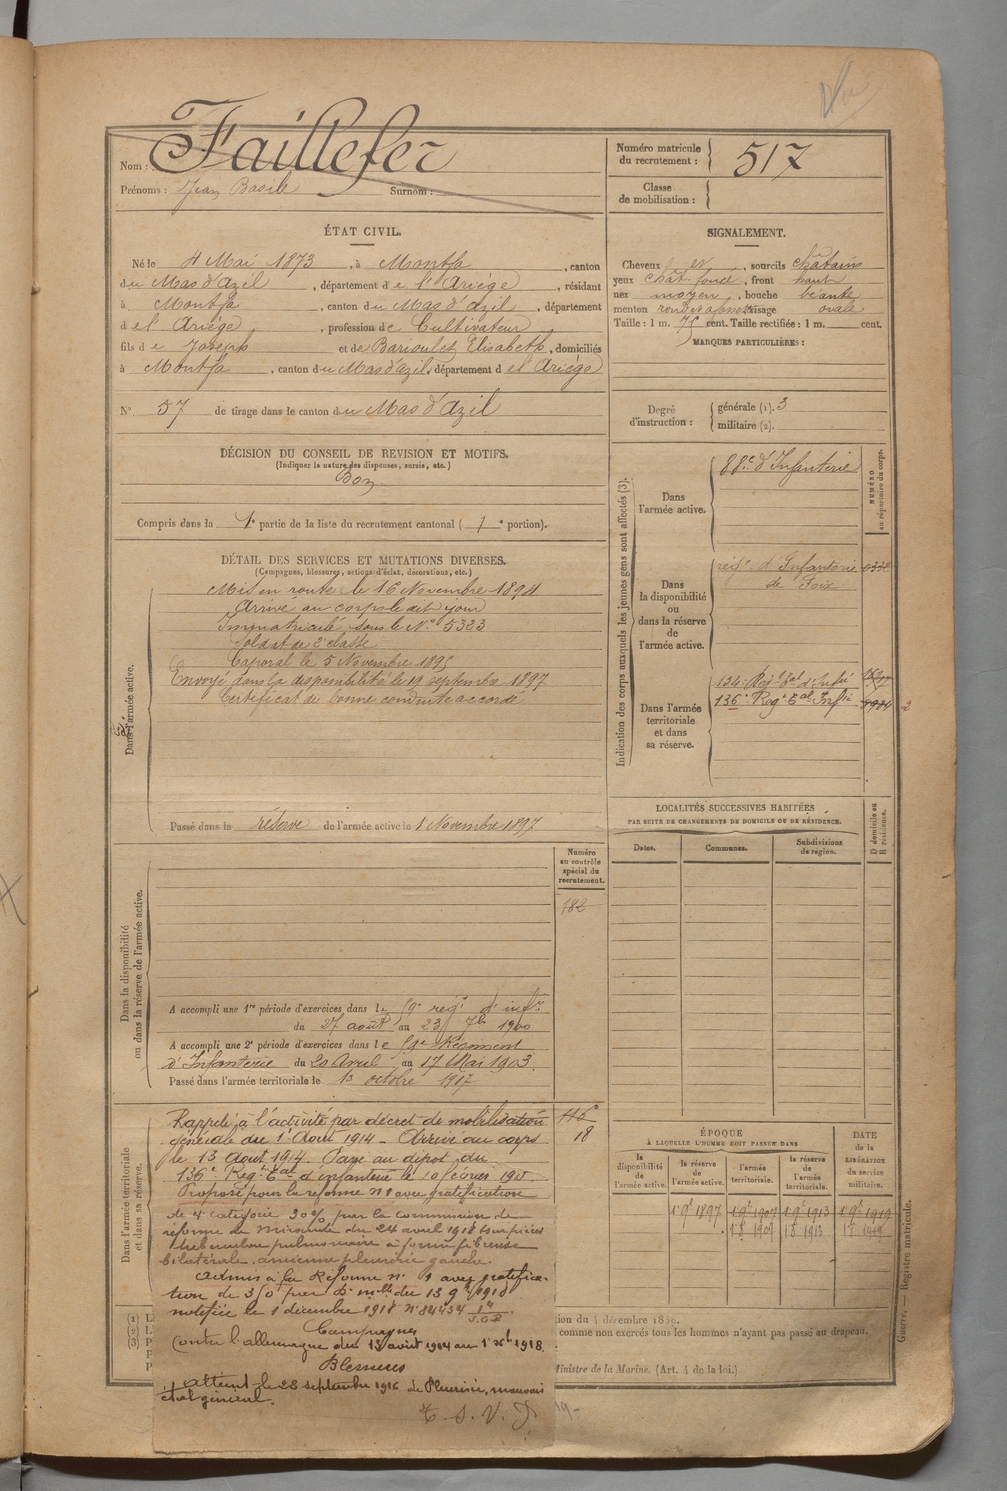 Nom : Faillefer
Prénoms : Jean Basile Surnom :
Numéro matricule du recrutement : 517
Classe de mobilisation :
ÉTAT CIVIL.
Né le 4 Mai 1873, à Montfa, canton
du Mas d'azil, département de l'Ariège, résidant
à Montfa, canton du Mas d'azil, département
de l'Ariège, profession de Cultivateur
fils de Joseph et de Barioulet Elisabeth, domiciliés
à Montfa, canton du Mas d'azil, département de l'Ariège
N° 57 de tirage dans le canton du Mas d'Azil
SIGNALEMENT.
Cheveux sourcils châtains
yeux chât foncé, front haut
nez moyen, bouche béante
menton rond visage ovale
Taille : 1 m. 75 cent. Taille rectifiée : 1 m. cent.
MARQUES PARTICULIÈRES :
Degré d'instruction : générale (1). 3
militaire (2).
DÉCISION DU CONSEIL DE REVISION ET MOTIFS.
(Indiquer la nature des dispenses, sursis, etc.)
Bon
Compris dans la 1e partie de la liste du recrutement cantonal ( 1e portion).
DÉTAIL DES SERVICES ET MUTATIONS DIVERSES.
(Campagnes, blessures, actions d'éclat, décorations, etc.)
Dans l'armée active.
Mis en route le 16 Novembre 1894
Arrivé au corps le dit jour
Immatriculé sous le N° 5323
Soldat de 2e classe
Caporal le 5 Novembre 1895
Envoyé dans la disponibilité le 19 septembre 1897
Certificat de bonne conduite accordé
Passé dans la réserve de l'armée active le 1 Novembre 1897
Indication des corps auxquels les jeunes gens sont affectés (3).
NUMÉRO au répertoire du corps.
Dans l'armée active.
88e d'Infanterie
Dans la disponibilité ou dans la réserve de l'armée active.
régt d'Infanterie
de Foix
Dans l'armée territoriale et dans sa réserve.
134e Regt Eal d'Infie
136e Regt Eal Infie
LOCALITÉS SUCCESSIVES HABITÉES
PAR SUITE DE CHANGEMENTS DE DOMICILE OU DE RÉSIDENCE.
Dates. Communes. Subdivisions de région.
D domicile ou R résidence.
Dans la disponibilité ou dans la réserve de l'armée active.
Numéro au contrôle spécial du recrutement.
182
A accompli une 1re période d'exercices dans le 59e regt d'infie
du 27 août au 23 7bre 1900
A accompli une 2e période d'exercices dans le 59e Régiment
d'Infanterie du 20 Avril au 17 Mai 1903.
Passé dans l'armée territoriale le 1 octobre 1907
Dans l'armée territoriale et dans sa réserve.
18
Rappelé à l'activité par décret de mobilisation
générale du 1e Août 1914 – Arrivé au corps
le 13 Août 1914. Passé au dépôt du
136e Regt Eal d'infanterie le 10 février 1915.
Proposé pour la réforme n° 1 avec gratification
de 4e catégorie 30% par la commission de
réforme de Mirande du 24 avril 1918
tuberculose pulmonaire à forme fibreuse
bilatérale, ancienne pleurésie gauche.
Admis à la Réforme n° 1 avec gratifica-
tion de par Dn mlle du 13 9bre 1918
notifiée le 1 décembre 1918 N° 84434
Campagnes
Contre l'allemagne du 13 août 1914 au 1e Xbre 1918.
Blessures
atteint le 28 septembre 1916 de Pleurésie, mauvais
état général.
T. S. V. P.
ÉPOQUE
À LAQUELLE L'HOMME DOIT PASSER DANS
la disponibilité de l'armée active. la réserve de l'armée active. l'armée territoriale. la réserve de l'armée territoriale.
DATE de la LIBÉRATION du service militaire.
1 9bre 1897 1 9bre 1907 1 9bre 1913 1 9bre 1919
1 8 1907 1 8 1913 1 8 1919
tion du 4 décembre 1889.
comme non exercés tous les hommes n'ayant pas passé au drapeau.
Ministre de la Marine. (Art. 4 de la loi.)
Guerre. — Registre matricule.